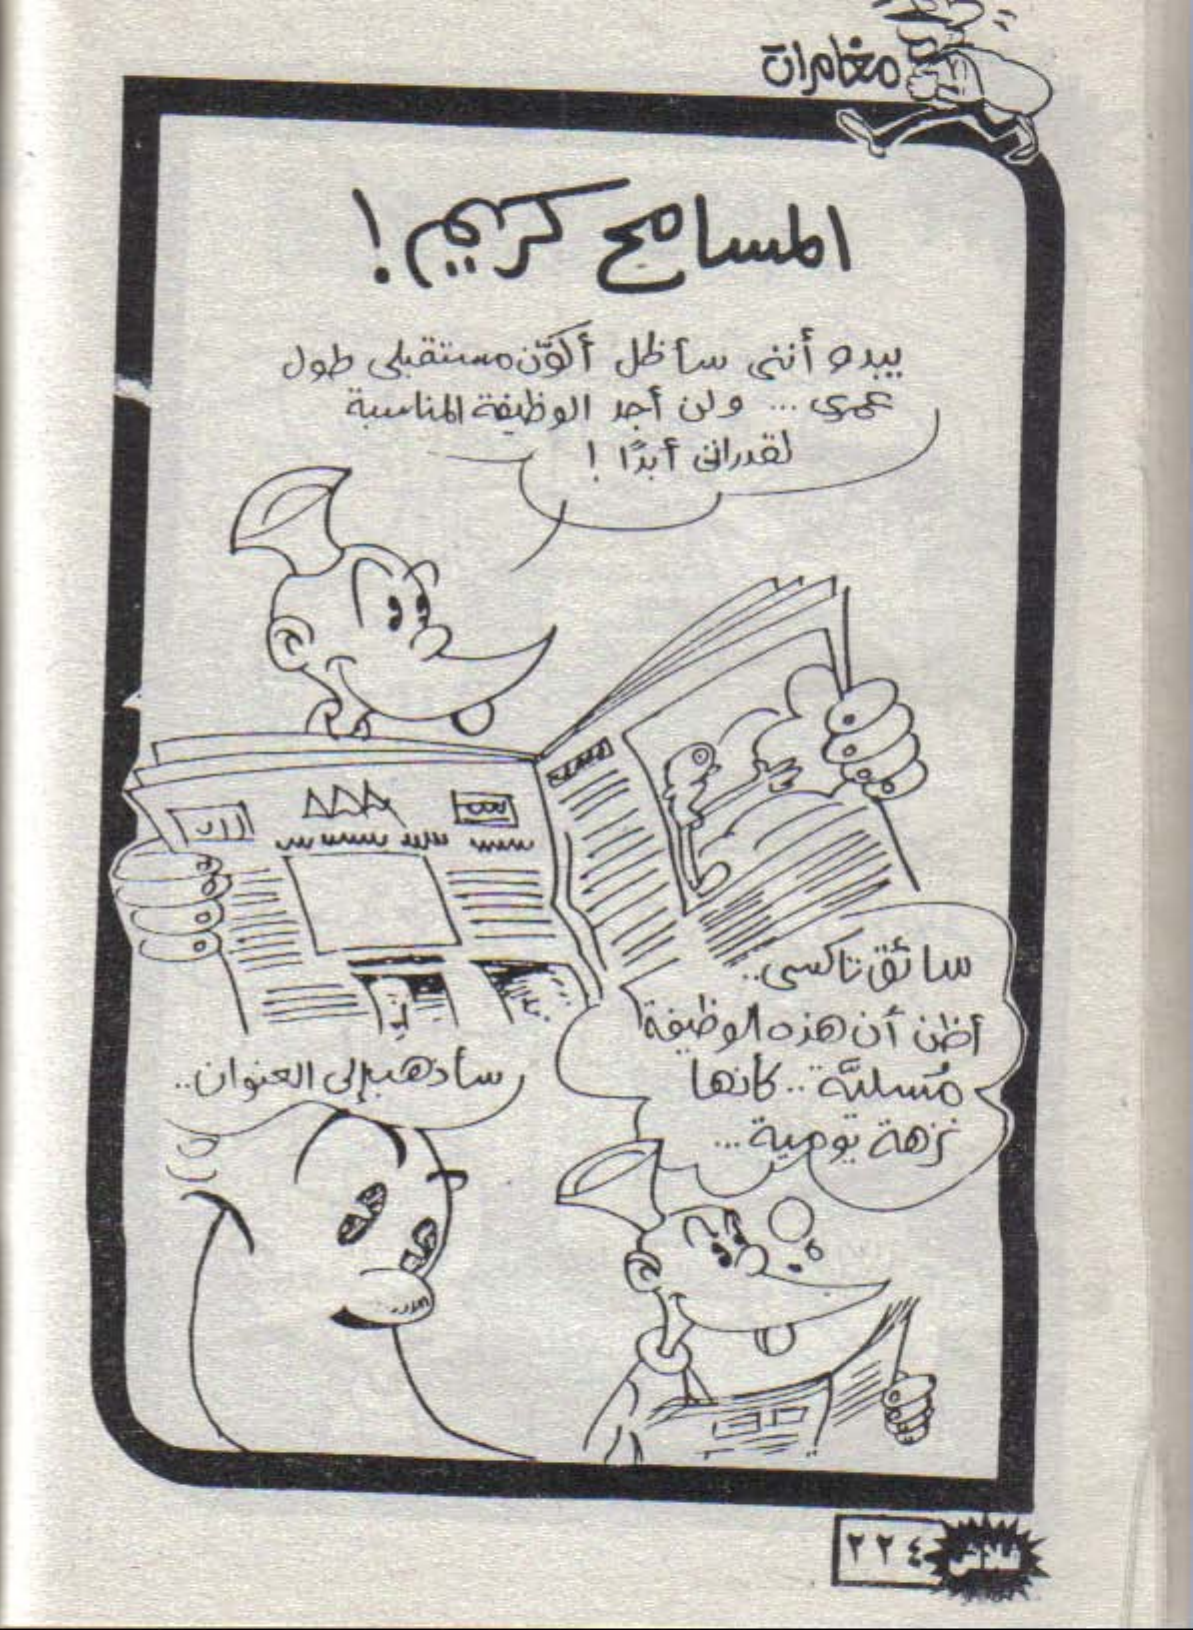 مغامرات
المسامح كريم!
يبدو أنني سأظل أكوّن مستقبلى طول
عمرى ... ولن أجد الوظيفة المناسبة
لقدراتى أبدًا !
سائق تاكسى..
أظن أن هذه الوظيفة
مُسليَّة .. كأنها
نزهة يومية ...
سأذهب إلى العنوان ..
فلاش
٢٢٤